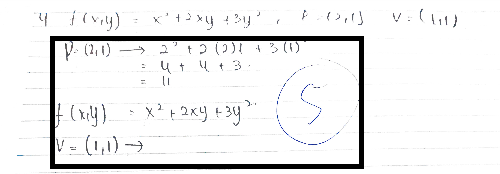 4 f(x,y) = x² + 2xy + 3y², P = (2,1) V = (1,1)
P = (2,1) → 2² + 2(2)1 + 3(1)
= 4 + 4 + 3
= 11
f(x,y) = x² + 2xy + 3y²
V = (1,1) →
5